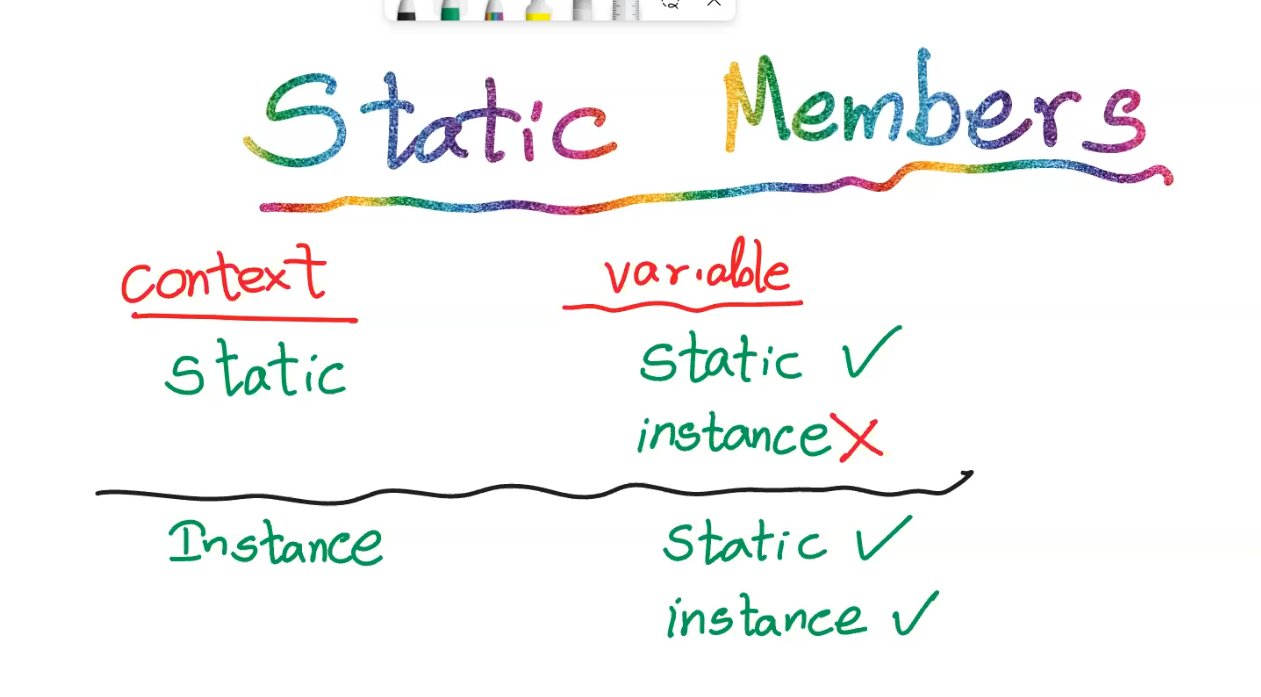 Static Members
context variable
static static ✓
instance X
Instance static ✓
instance ✓